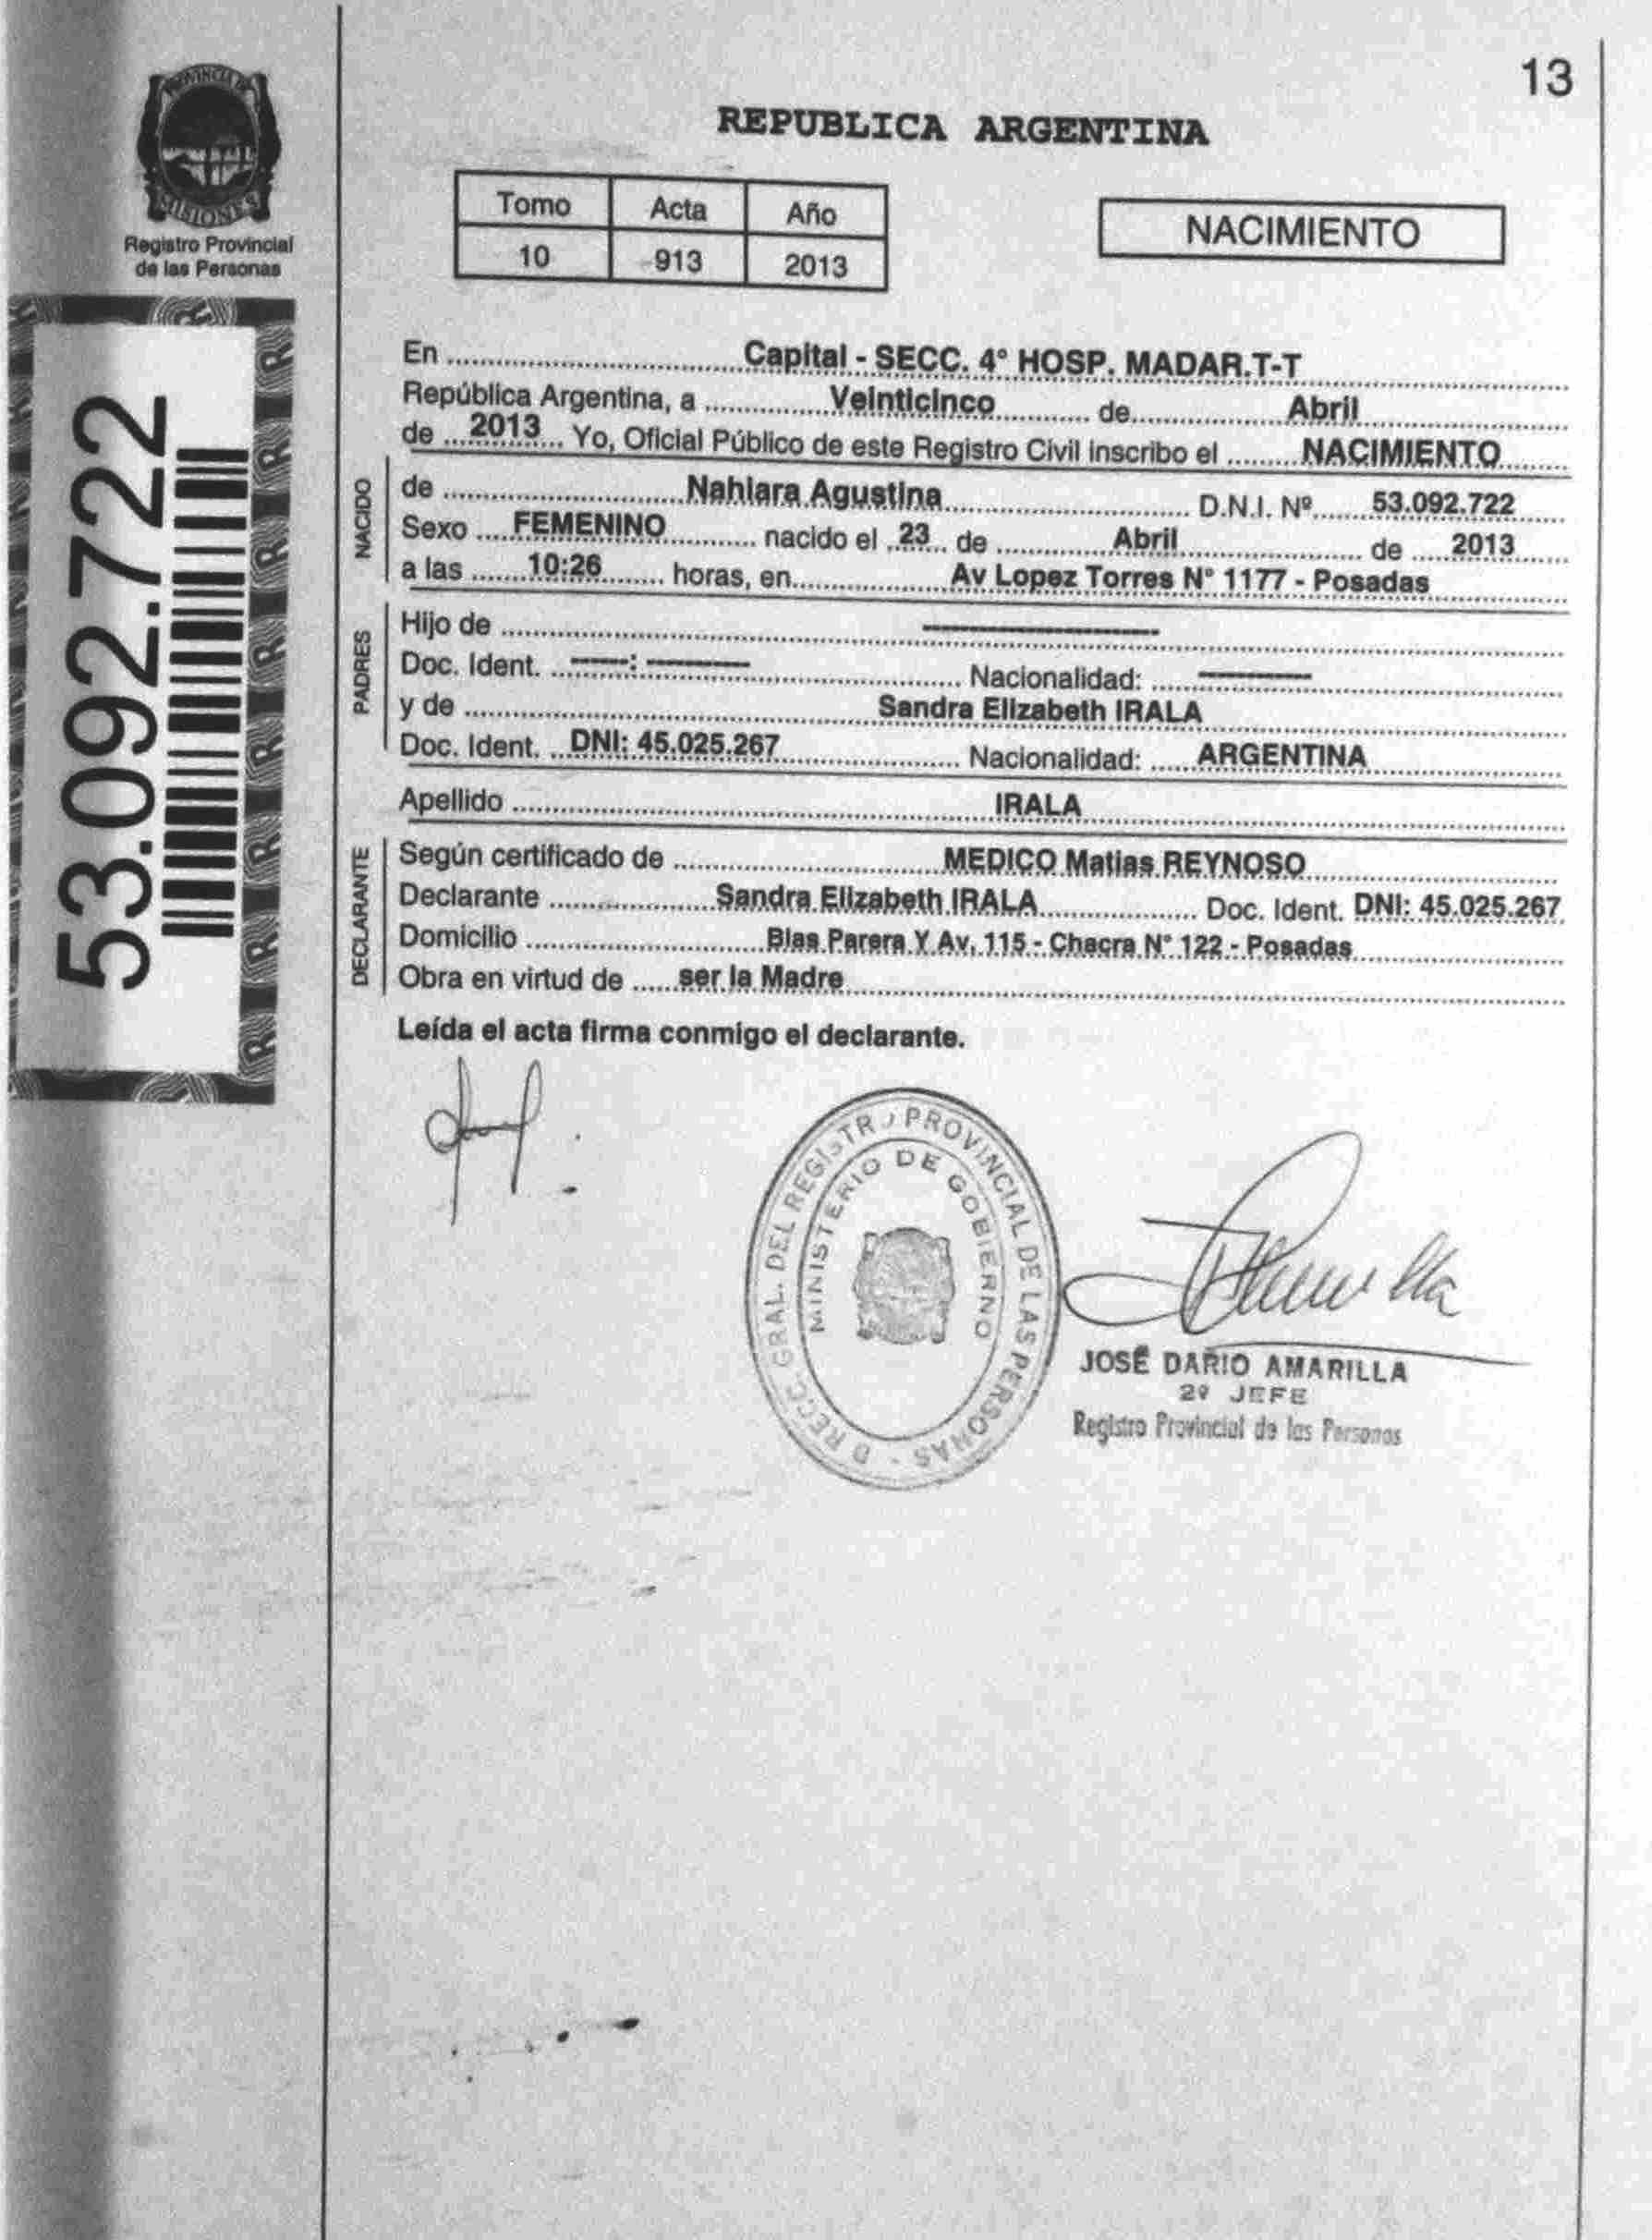 13
PROVINCIA DE
MISIONES
Registro Provincial
de las Personas
53.092.722
REPUBLICA ARGENTINA
Tomo Acta Año
10 913 2013
NACIMIENTO
En Capital - SECC. 4° HOSP. MADAR.T-T
República Argentina, a Veinticinco de Abril
de 2013 Yo, Oficial Público de este Registro Civil inscribo el NACIMIENTO
NACIDO
de Nahiara Agustina D.N.I. Nº 53.092.722
Sexo FEMENINO nacido el 23 de Abril de 2013
a las 10:26 horas, en Av Lopez Torres N° 1177 - Posadas
PADRES
Hijo de
Doc. Ident. : Nacionalidad:
y de Sandra Elizabeth IRALA
Doc. Ident. DNI: 45.025.267 Nacionalidad: ARGENTINA
Apellido IRALA
DECLARANTE
Según certificado de MEDICO Matias REYNOSO
Declarante Sandra Elizabeth IRALA Doc. Ident. DNI: 45.025.267
Domicilio Blas Parera Y Av. 115 - Chacra N° 122 - Posadas
Obra en virtud de ser la Madre
Leída el acta firma conmigo el declarante.
D RECC. GRAL. DEL REGISTRO PROVINCIAL DE LAS PERSONAS -
MINISTERIO DE GOBIERNO
JOSÉ DARIO AMARILLA
2º JEFE
Registro Provincial de las Personas